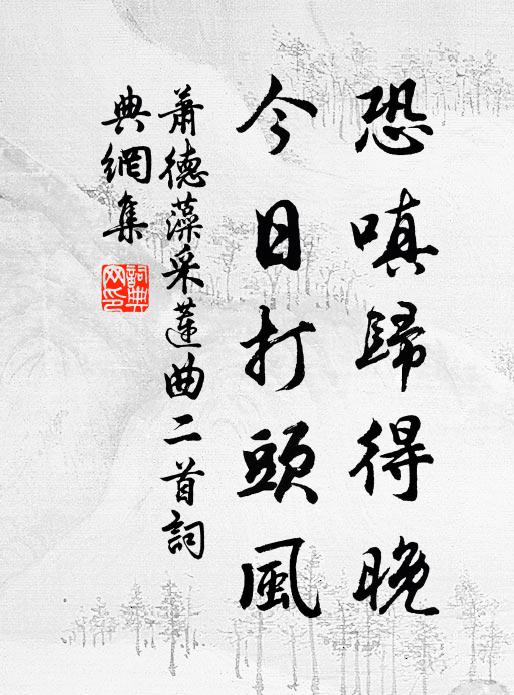 恐嗔歸得晚
今日打頭風
蕭德藻采蓮曲二首詞
典網集
詞典网印